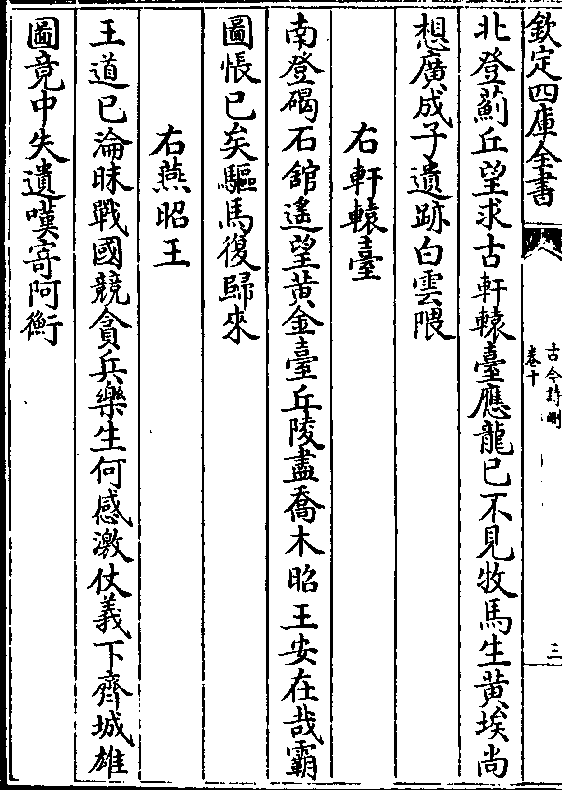 欽定四庫全書
古今詩刪
卷十
三
北登薊丘望求古軒轅臺應龍已不見牧馬生黃埃尚
想廣成子遺跡白雲隈
右軒轅臺
南登碣石館遙望黃金臺丘陵盡喬木昭王安在哉霸
圖悵已矣驅馬復歸來
右燕昭王
王道已淪昧戰國競貪兵樂生何感激仗義下齊城雄
圖竟中失遺嘆寄阿衡